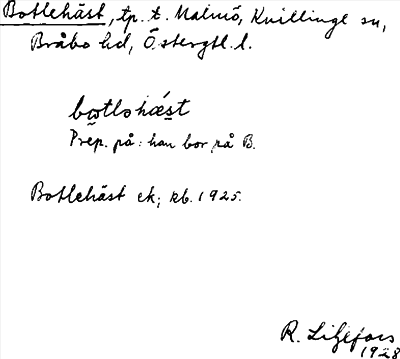 Botlehäst, tp. t. Malmö, Kvillinge sn,
Bråbo hd, Östergtl. l.
botlohǽst
Prep. på: han bor på B.
Botlehäst ek; kb. 1925.
R. Liljefors
1928